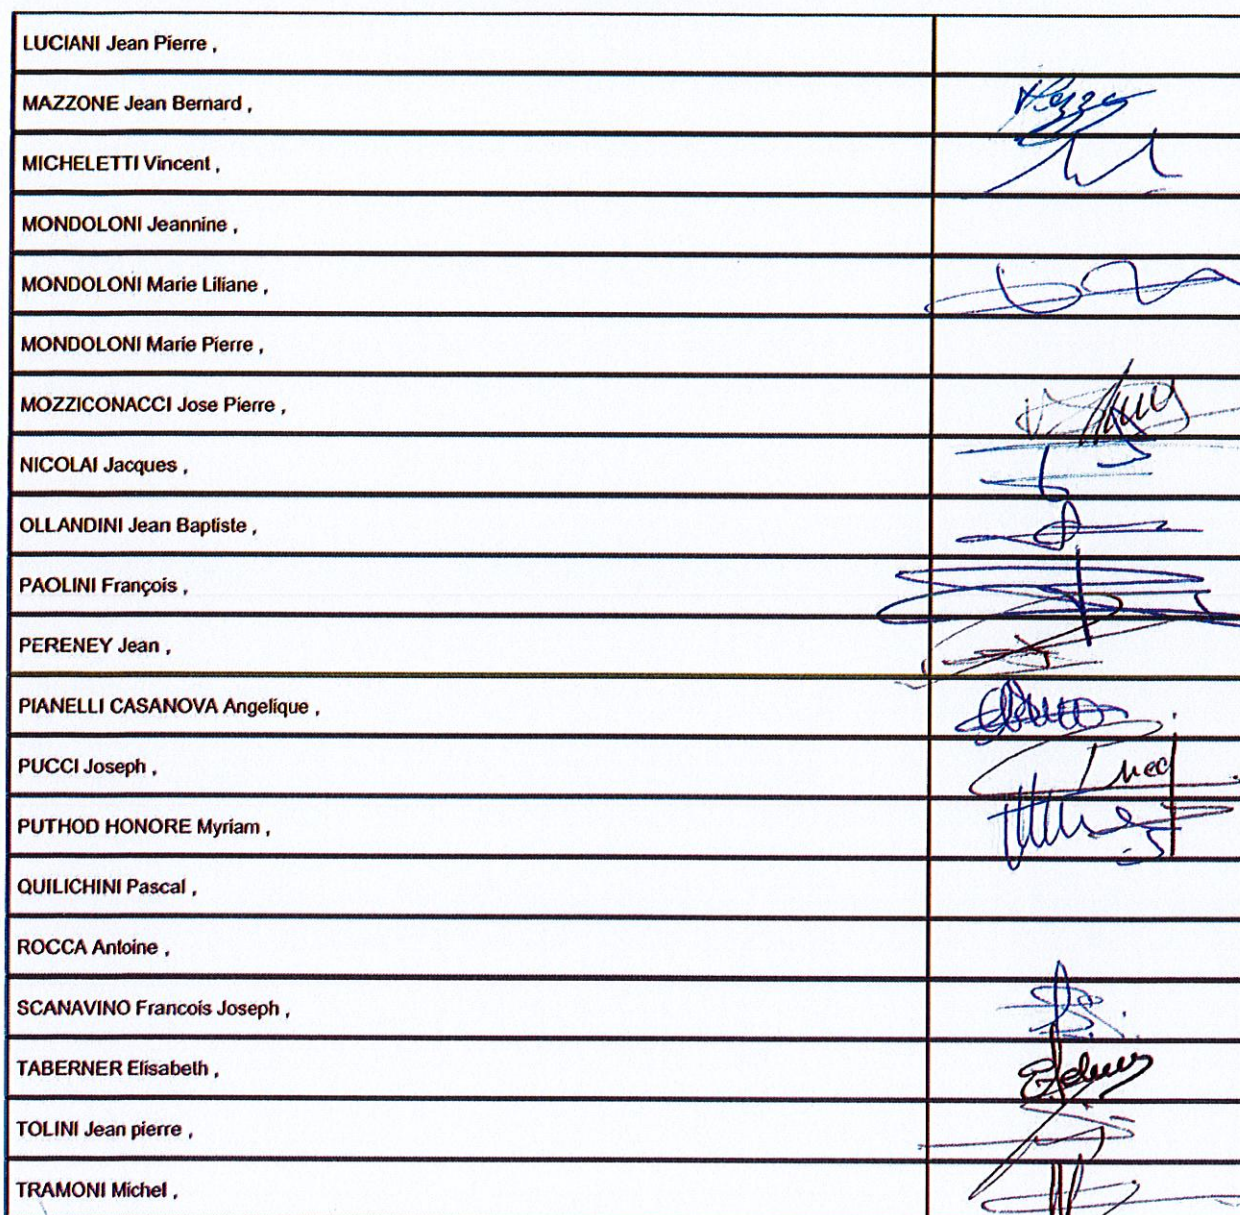 LUCIANI Jean Pierre ,
MAZZONE Jean Bernard ,
MICHELETTI Vincent ,
MONDOLONI Jeannine ,
MONDOLONI Marie Liliane ,
MONDOLONI Marie Pierre ,
MOZZICONACCI Jose Pierre ,
NICOLAI Jacques ,
OLLANDINI Jean Baptiste ,
PAOLINI François ,
PERENEY Jean ,
PIANELLI CASANOVA Angelique ,
PUCCI Joseph ,
PUTHOD HONORE Myriam ,
QUILICHINI Pascal ,
ROCCA Antoine ,
SCANAVINO Francois Joseph ,
TABERNER Elisabeth ,
TOLINI Jean pierre ,
TRAMONI Michel ,